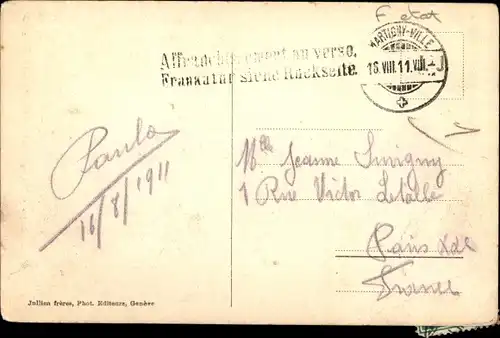 F etat
MARTIGNY-VILLE
16.VIII.11.VIII.-J
Affranchissement au verso.
Frankatur siehe Rückseite.
Paula
16/8/1911
Mlle Jeanne Suvigny
1 Rue Victor Letalle
Paris XXe
France
Jullien frères, Phot. Editeurs, Genève